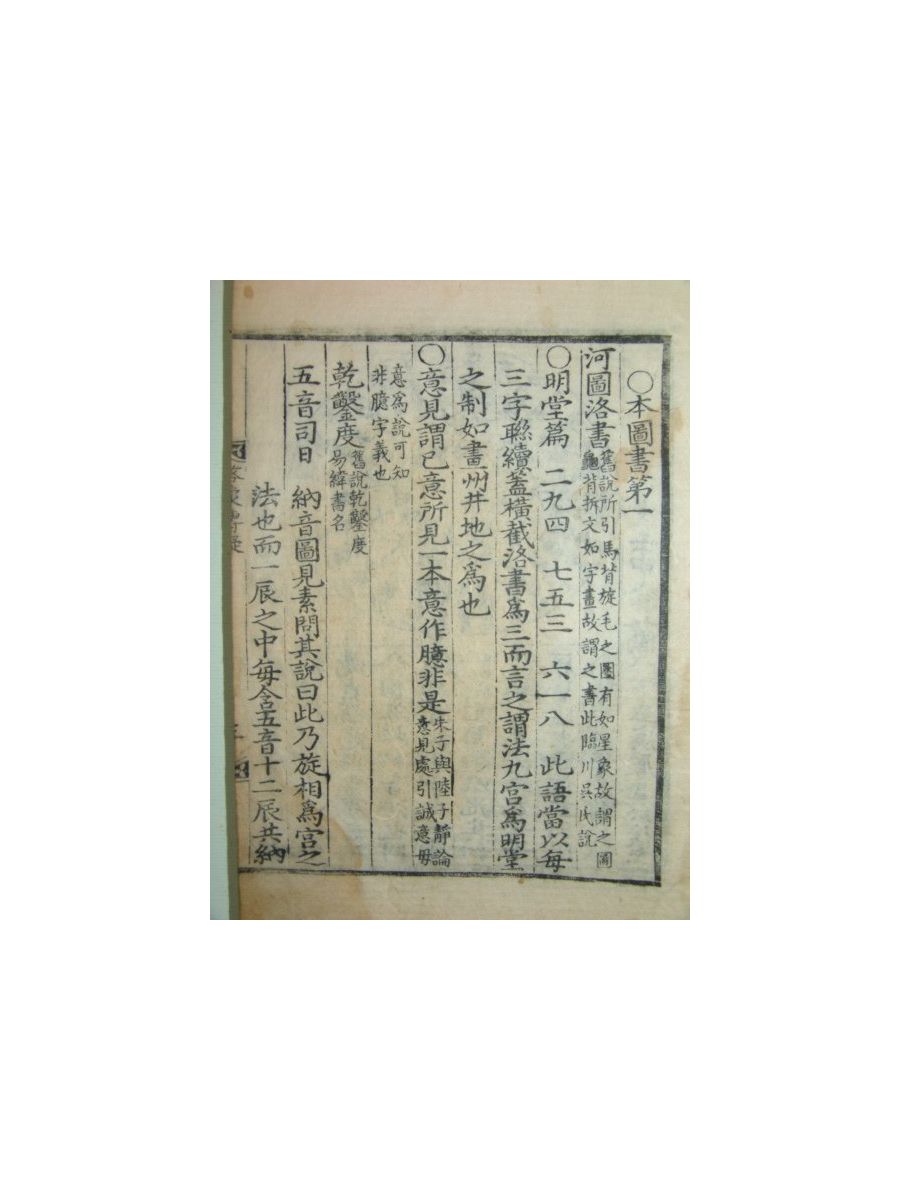 ○本圖書第一
河圖洛書舊說所引馬背旋毛之圈有如星象故謂之圖
龜背拆文如字畫故謂之書此臨川吳氏說
○明堂篇 二九四 七五三 六一八 此語當以每
三字聯續蓋橫截洛書爲三而言之謂法九宮爲明堂
之制如畫州井地之爲也
○意見謂己意所見一本意作臆非是朱子與陸子靜論
意見處引誠意毋
意爲說可知
非臆字義也
乾鑿度舊說乾鑿度
易緯書名
五音司日 納音圖見素問其說曰此乃旋相爲宮之
法也而一辰之中每含五音十二辰共納